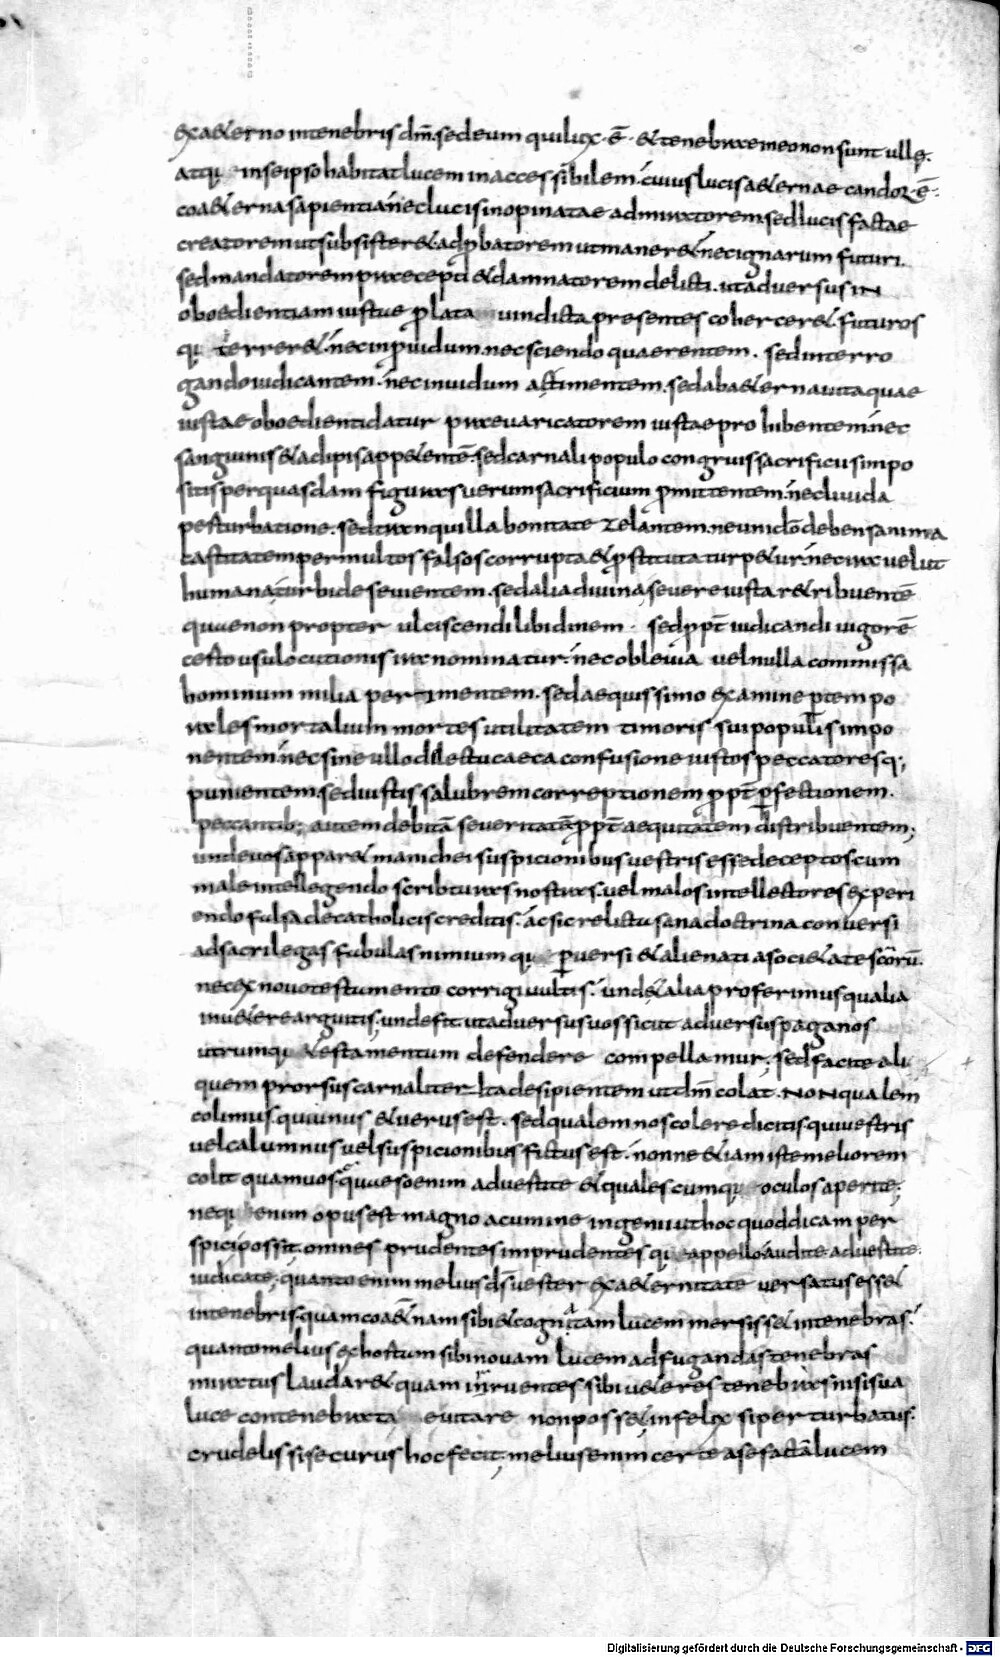 ex aeterno in tenebris dm̄. sed eum qui lux · ē · & tenebrae in eo non sunt ullę.
atq; in se ipso habitat lucem inaccessibilem. cuius lucis aeternae candor · ē ·
coaeterna sapientia. nec lucis inopinatae admiratorem. sed lucis factae
creatorem ut subsister& adp̄batorem ut maner&. nec ignarum futuri.
sed mandatorem praecepti & damnatorem delicti. ut adversus in
oboedientiam iustae p̄lata vindicta presentes cohercer&. futuros
q; terrer&. nec inp̄vidum. nec sciendo quaerentem. sed interro
gando iudicantem. nec invidum a timentem. sed ab aeterna vita quae
iustae oboedienti datur praevaricatorem iustae prohibentem. nec
sanguinis & adipis appetentē. sed carnali populo congruis sacrificiis impo
sitis per quasdam figuras verum sacrificium p̄mittentem. nec livida
perturbatione. sed tranquilla bonitate zelantem. ne uni dō debens anima
castitatem per multos falsos corrupta & p̄stituta turpetur. nec ira velut
humana turbide sevientem. sed alia divina severe iusta retribuentē
quae non propter ulciscendi libidinem · sed p̄pt̄ iudicandi vigorē
certo usu locutionis ira nominatur. nec ob levia vel nulla commissa
hominum milia perimentem. sed aequissimo examine p̄ tempo
rales mortalium mortes utilitatem timoris sui populis impo
nentem. nec sine ullo dilectu caeca confusione iustos peccatoresq;
punientem. sed iustis salubrem correptionem p̄pt̄ p̄fectionem.
peccantib; autem debitā severitatē p̄pt̄ aequitatem distribuentem;
unde vos appar& manichei suspicionibus vestris esse deceptos cum
male intellegendo scribturas nostras. vel malos intellectores experi
endo falsa de catholicis creditis. ac sic relicta sana doctrina conversi
ad sacrilegas fabulas nimium q; p̄versi & alienati a societate scōrū.
nec ex novo testamento corrigi vultis. unde talia proferimus qualia
in vetere arguitis. unde fit. ut adversus vos sicut adversus paganos
utrumq; testamentum defendere compellamur; sed facite ali
quem prorsus carnaliter ita desipientem ut dm̄ colat. non qualem
colimus. qui unus & verus est. sed qualem nos colere dicitis. qui vestris
vel calumniis vel suspicionibus fictus est. nonne etiam iste meliorem
colit quam vos. quaeso enim advertite & qualescumq; oculos aperite;
neq; enim opus est magno acumine ingenii ut hoc quod dicam per
spici possit. omnes prudentes imprudentesq; appello. audite. advertite.
iudicate; quanto enim melius ds̄ vester ex aeternitate versatus esset
in tenebris. quam coaeternam sibi & cognatam lucem mersisset in tenebras.
quanto melius exortam sibi novam lucem ad fugandas tenebras
miratus laudaret quam inruentes sibi veteres tenebras nisi sua
luce contenebrata evitare non posset. infelix si perturbatus.
crudelis si securus hoc fecit; melius enim certe a se factā lucem